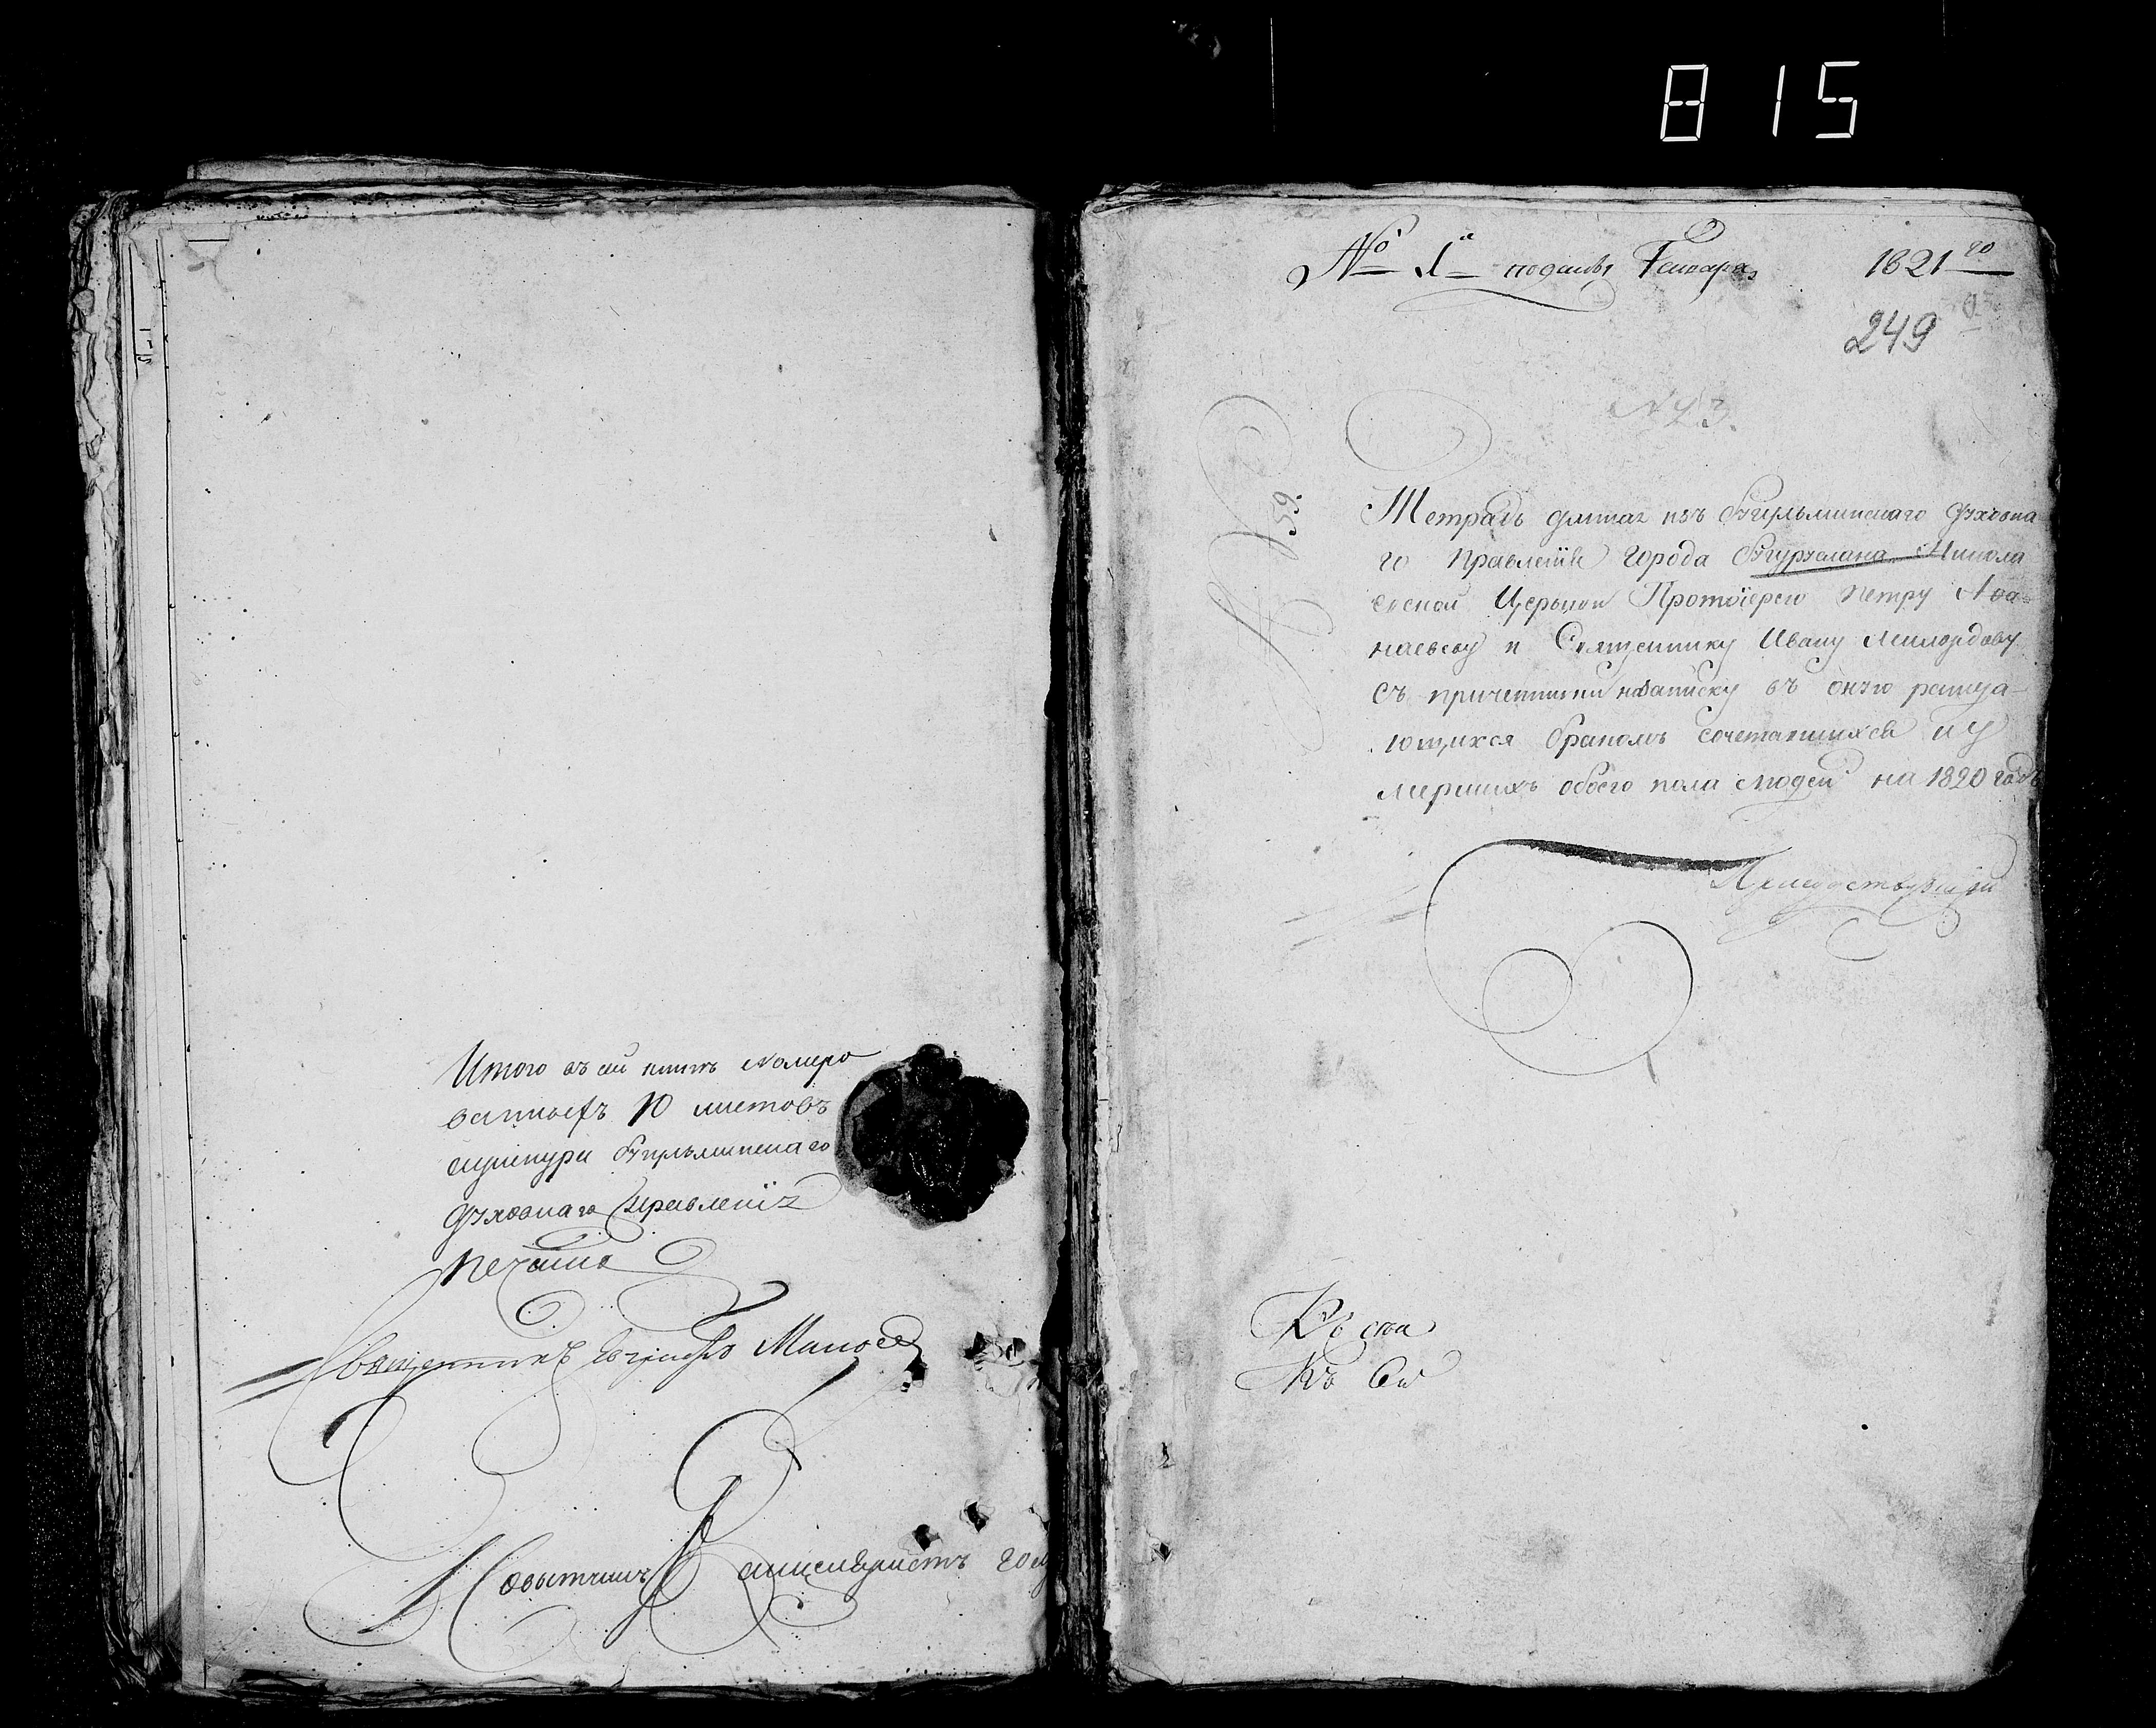 815
Итого въ сей книгѣ номеро
ванныхъ 10 листовъ
скрепури Бугульминскаго
Духовнаго Правленія
печатью
Священникъ Евграфъ
Повытчикъ Канцеляристъ
№ 1й поданъ Генваря 1821го
249
№ 43.
№ 59.
Тетрадь данная изъ Бугульминскаго Духовна
го Правленія города Бугуруслана Никола
евской Церкви Протоіерею Петру Афа-
насьеву и Священнику Ивану Милордову
съ причетники на записку въ оную раждa-
ющихся бракомъ сочетавшихся и у
мершихъ обоего пола людей на 1820 годъ
Къ сей
Къ Сей